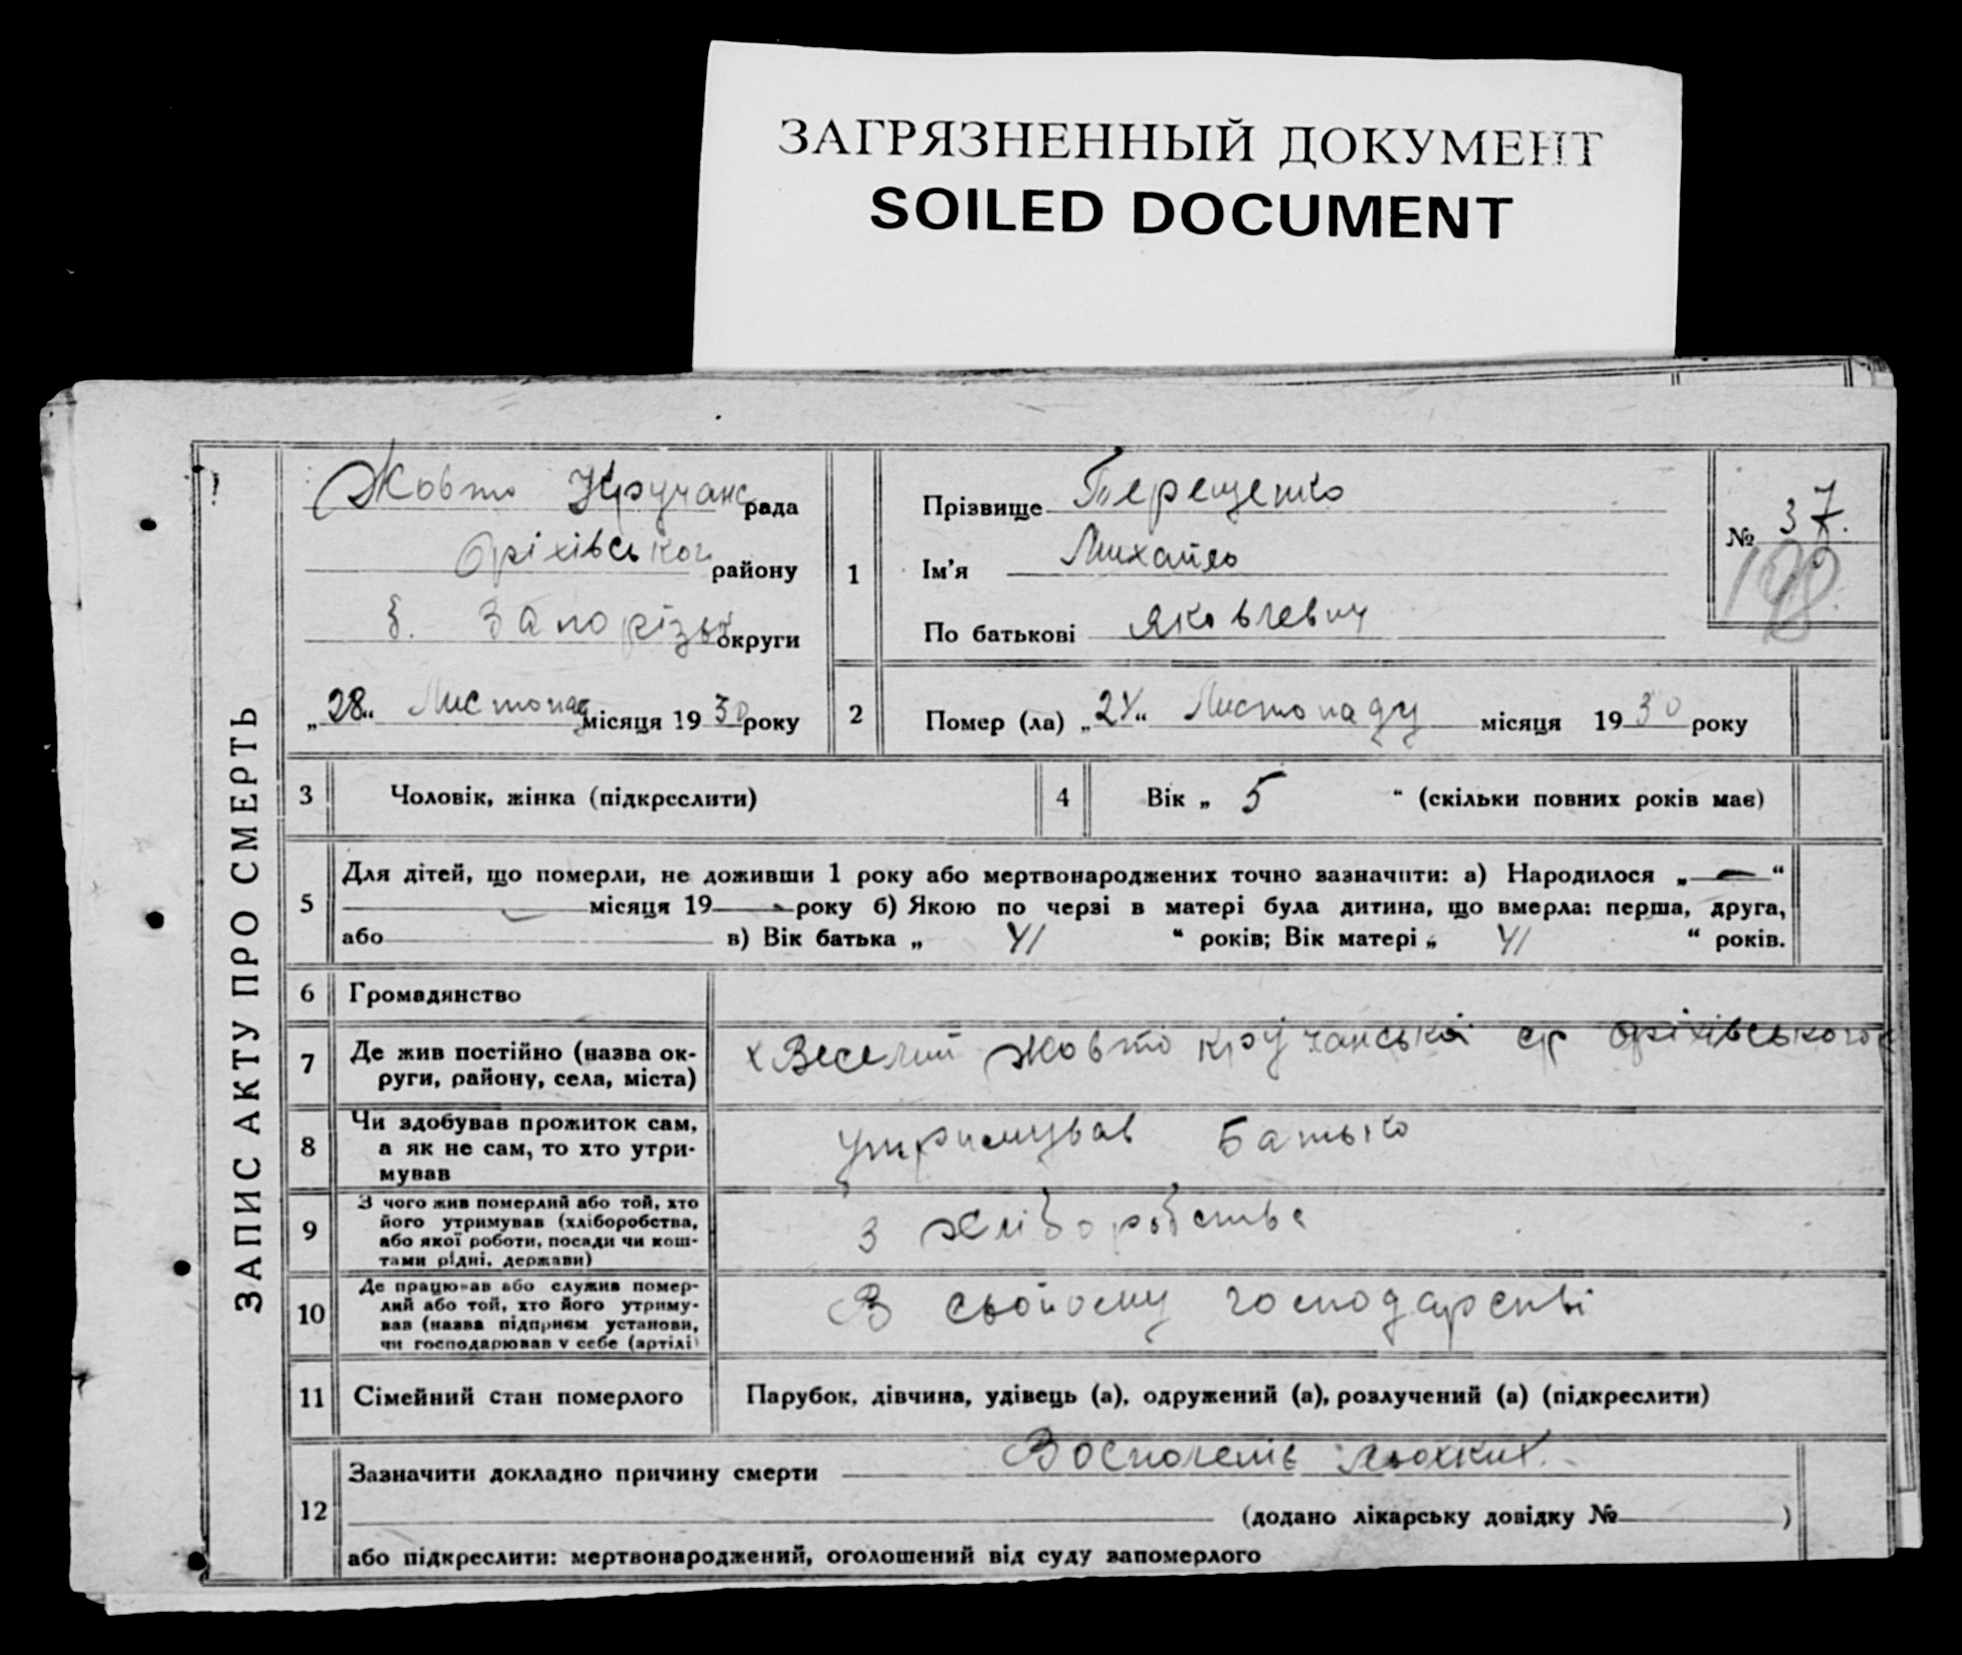 ЗАГРЯЗНЕННЫЙ ДОКУМЕНТ
SOILED DOCUMENT
ЗАПИС АКТУ ПРО СМЕРТЬ
Жовто Кручанс рада
Оріхівськог району
б. Запорізьк округи
„28“ Листопад місяця 1930 року
1
Прізвище Терещенко
Ім’я Михайло
По батькові Яковлевич
№ 37.
198
2
Помер (ла) „24“ Листопаду місяця 1930 року
3 Чоловік, жінка (підкреслити)
4 Вік „ 5 “ (скільки повних років має)
5 Для дітей, що померли, не доживши 1 року або мертвонароджених точно зазначити: а) Народилося „—“
місяця 19— року б) Якою по черзі в матері була дитина, що вмерла: перша, друга,
або в) Вік батька „ 41 “ років; Вік матері „ 41 “ років.
6 Громадянство
7 Де жив постійно (назва ок-
руги, району, села, міста)
х Веселий Жовто кручанської ср Оріхівського
8 Чи здобував прожиток сам,
а як не сам, то хто утри-
мував
утримував Батько
9 З чого жив померлий або той, хто
його утримував (хліборобства,
або якої роботи, посади чи кош-
тами рідні, держави)
З хліборобства
10 Де працював або служив помер-
лий або той, хто його утриму-
вав (назва підприєм установи,
чи господарював у себе (артілі)
В свойому господарстві
11 Сімейний стан померлого
Парубок, дівчина, удівець (а), одружений (а), розлучений (а) (підкреслити)
12 Зазначити докладно причину смерти
(додано лікарську довідку № )
або підкреслити: мертвонароджений, оголошений від суду запомерлого